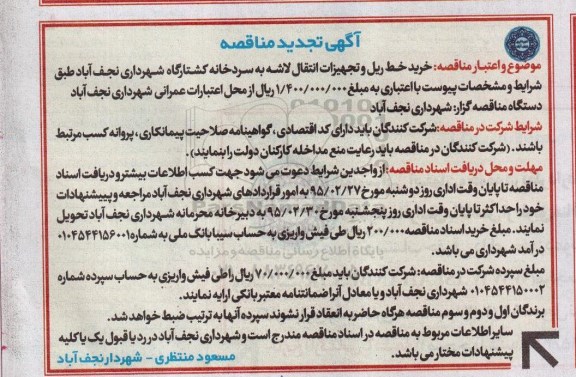 آگهی تجدید مناقصه
موضوع و اعتبار مناقصه: خرید خط ریل و تجهیزات انتقال لاشه به سردخانه کشتارگاه شهرداری نجف آباد طبق
شرایط و مشخصات پیوست با اعتباری به مبلغ ۱/۴۰۰/۰۰۰/۰۰۰ ریال از محل اعتبارات عمرانی شهرداری نجف آباد
دستگاه مناقصه گزار: شهرداری نجف آباد
شرایط شرکت در مناقصه: شرکت کنندگان باید دارای کد اقتصادی، گواهینامه صلاحیت پیمانکاری، پروانه کسب مرتبط
باشند. (شرکت کنندگان در مناقصه باید رعایت منع مداخله کارکنان دولت را بنمایند).
مهلت و محل دریافت اسناد مناقصه: از واجدین شرایط دعوت می شود جهت کسب اطلاعات بیشتر و دریافت اسناد
مناقصه تا پایان وقت اداری روز دوشنبه مورخ ۹۵/۰۲/۲۷ به امور قراردادهای شهرداری نجف آباد مراجعه و پیشنهادات
خود را حداکثر تا پایان وقت اداری روز پنجشنبه مورخ ۹۵/۰۲/۳۰ به دبیرخانه محرمانه شهرداری نجف آباد تحویل
نمایند. مبلغ خرید اسناد مناقصه ۲۰۰/۰۰۰ ریال طی فیش واریزی به حساب سیبا بانک ملی به شماره ۰۱۰۴۵۴۴۱۵۶۰۰۱
در آمد شهرداری می باشد.
مبلغ سپرده شرکت در مناقصه: شرکت کنندگان باید مبلغ ۷۰/۰۰۰/۰۰۰ ریال را طی فیش واریزی به حساب سپرده شماره
۰۱۰۴۵۴۴۱۵۰۰۰۲ شهرداری نجف آباد و یا معادل آنرا ضمانتنامه معتبر بانکی ارایه نمایند.
برندگان اول و دوم و سوم مناقصه هرگاه حاضر به انعقاد قرار نشوند سپرده آنها به ترتیب ضبط خواهد شد.
سایر اطلاعات مربوط به مناقصه در اسناد مناقصه مندرج است و شهرداری نجف آباد در رد یا قبول یک یا کلیه
پیشنهادات مختار می باشد.
مسعود منتظری - شهردار نجف آباد